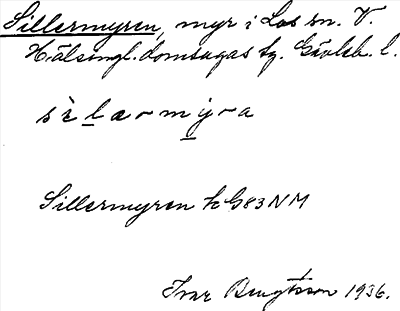 Sillermyren, myr i Los sn. V.
Hälsingl. domsagas tg. Gävleb. l.
sèlærmyra
Sillermyren k G83NM
Ivar Bengtsson 1936.